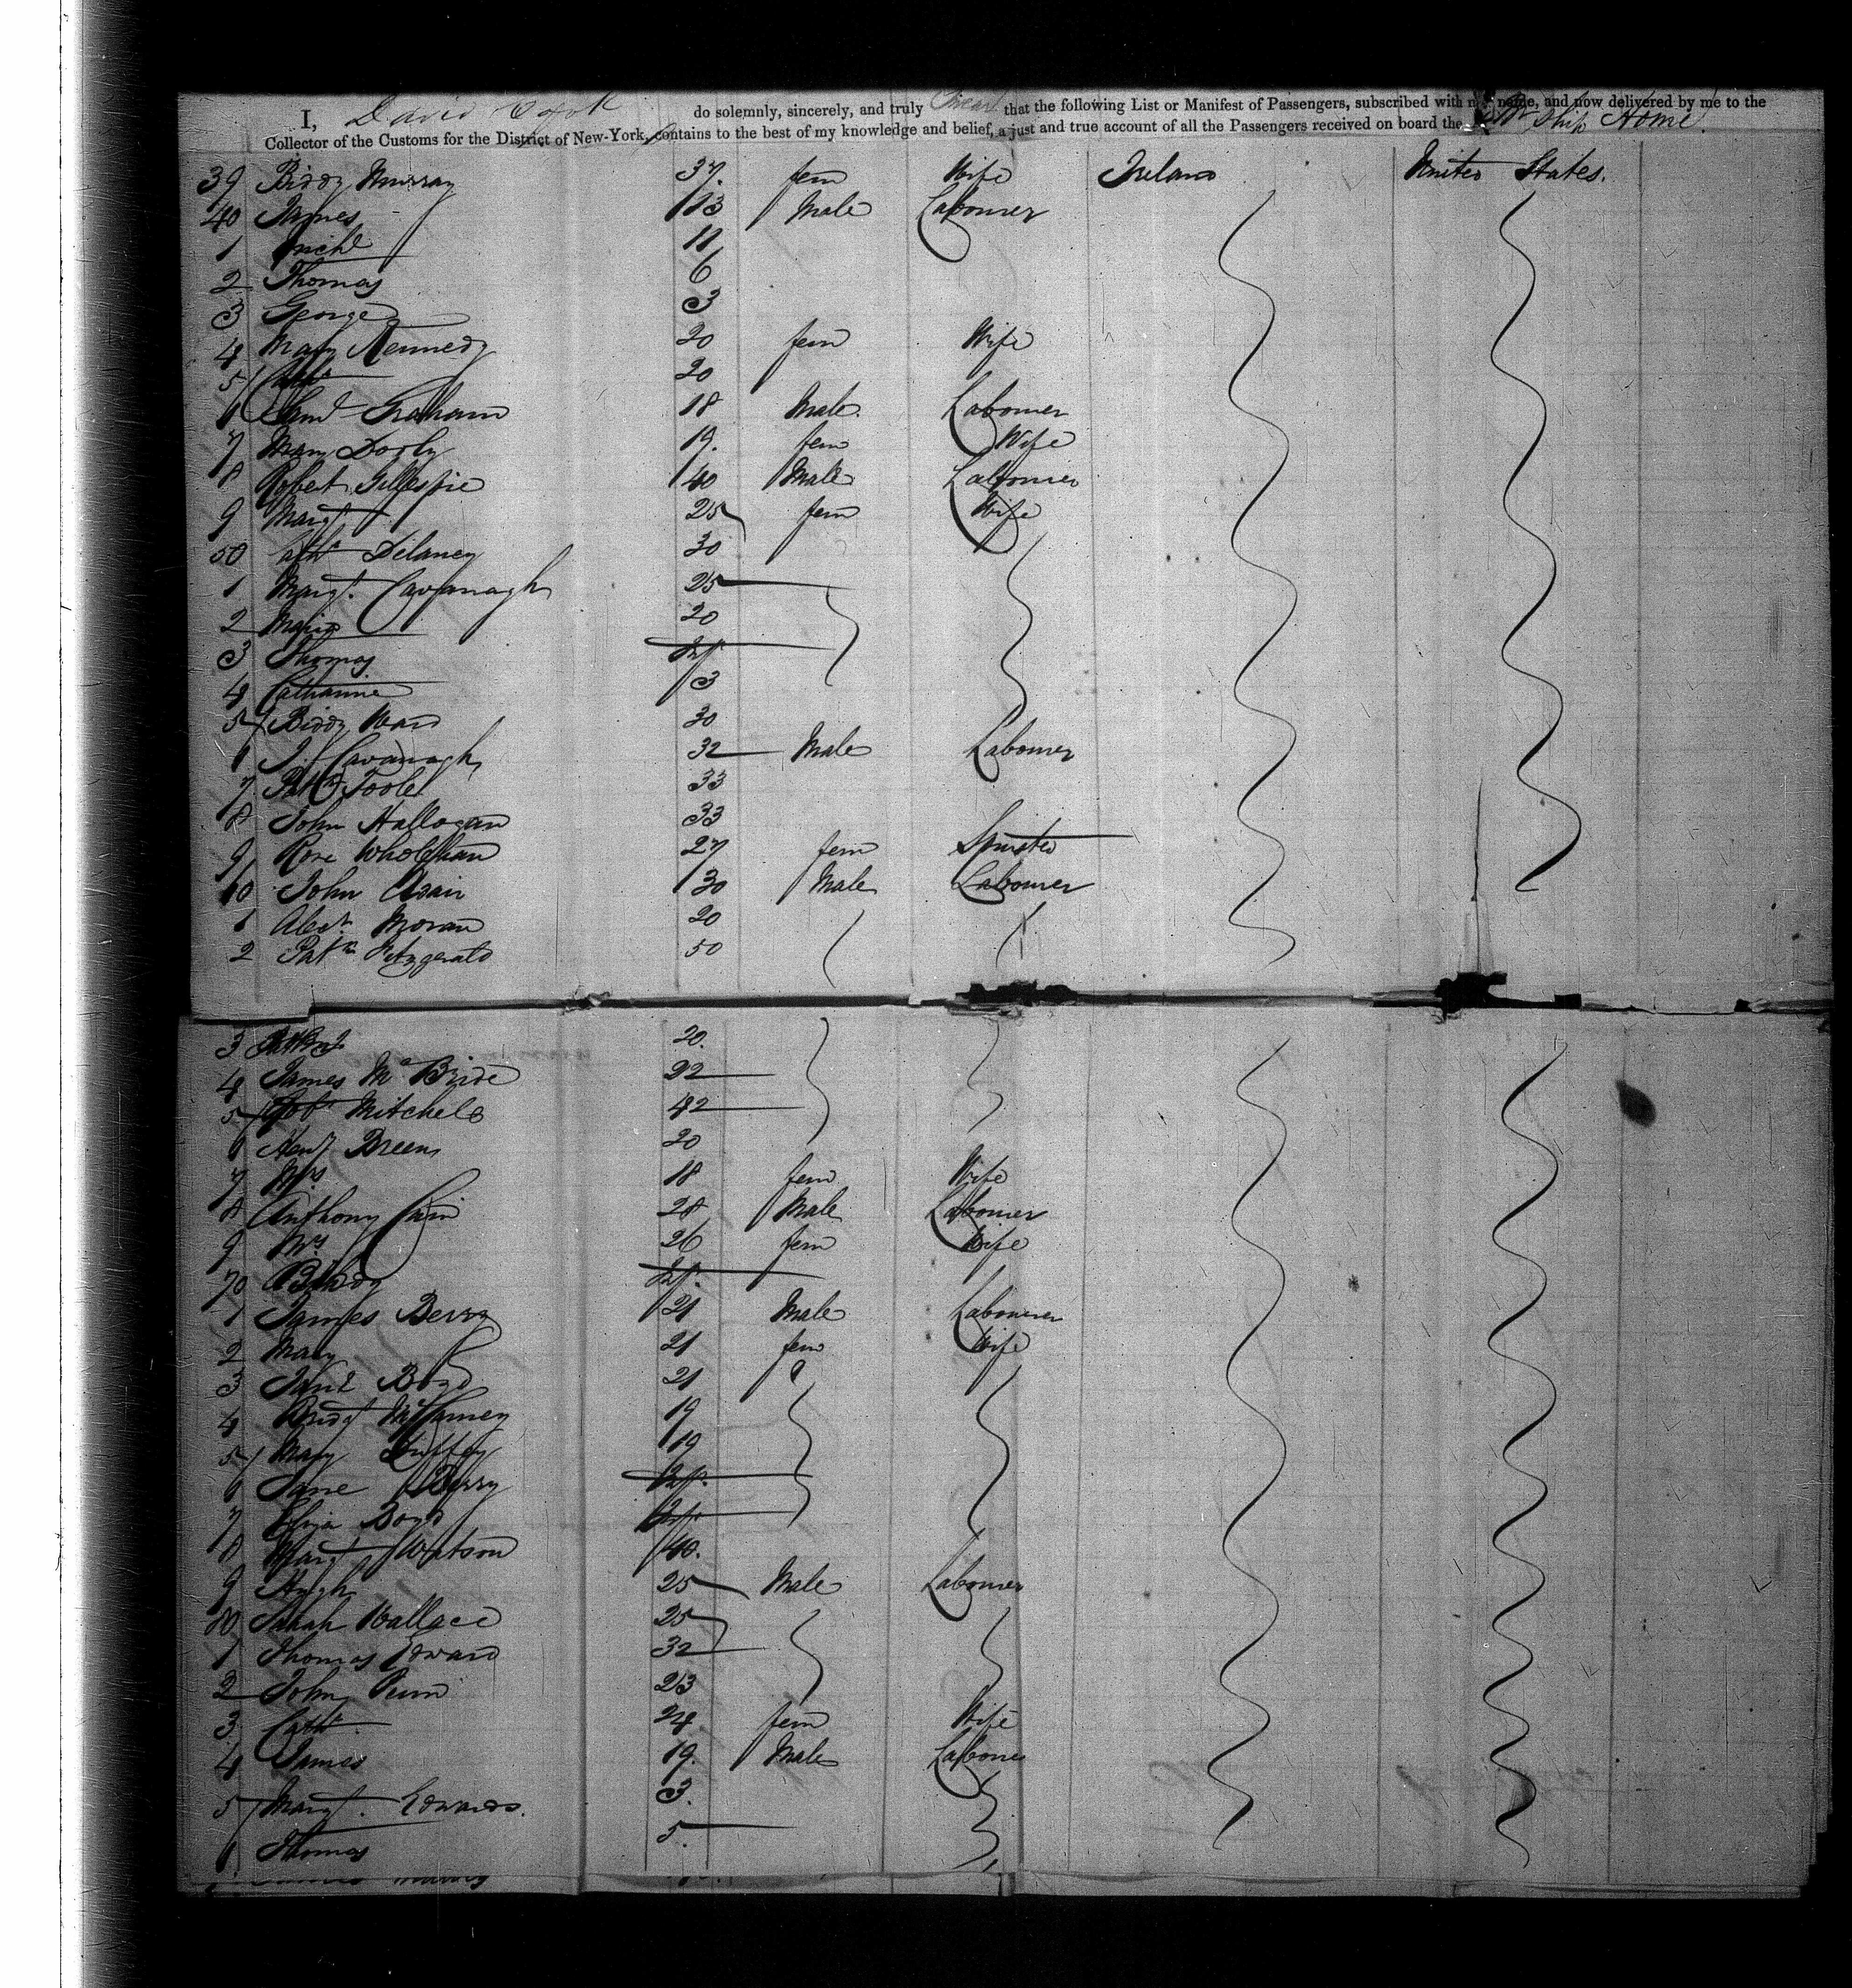 I, David do solemnly, sincerely, and truly Swear that the following List or Manifest of Passengers, subscribed with my name, and now delivered by me to the
Collector of the Customs for the District of New-York, contains to the best of my knowledge and belief, a just and true account of all the Passengers received on board the Ship Home.
39 Biddy Murray 37. fem Wife Ireland United States.
40 James 13 Male Labourer
1 Michl 11
2 Thomas 6
3 George 3
4 Mary Kennedy 20 fem Wife
5 Cathe 20
6 Saml Graham 18 Male. Labourer
7 Mary Dooly 19. fem Wife
8 Robert Gillespie 40 Male Labourer
9 Margt 25 fem Wife
50 Delaney 30
1 Margt. Cavanagh 25
2 Maria 20
3 Thomas Inf
4 Catharine 3
5 Biddy Ward 30
6 J. Cavanagh 32 Male Labourer
7 Patk O'Toole 33
8 John Hallogan 33
9 Rose 27 fem Spinster
60 John Adair 30 Male Labourer
1 Alexr Moran 20
2 Patk Fitzgerald 50
3 20.
4 James McBride 22
5 Robt Mitchell 42
6 Heny Breen 20
7 Mrs 18 fem Wife
8 Anthony Cain 28 Male Labourer
9 Mrs 26 fem Wife
70 Biddy Inf.
1 James Berry 21 Male Labourer
2 Mary 21 fem Wife
3 Jane Boyd 21
4 Bridgt 19
5 Mary Duffey 19
6 Jane Berry Inf.
7 Eliza Boyd Inf
8 Margt Watson 40.
9 Hugh 25 Male Labourer
80 Sarah Wallace 25
1 Thomas Edward 32
2 John 23
3 Cathe. 24 fem Wife
4 James 19. Male Labourer
5 Margt. Edwards. 3.
6 Thomas 5.